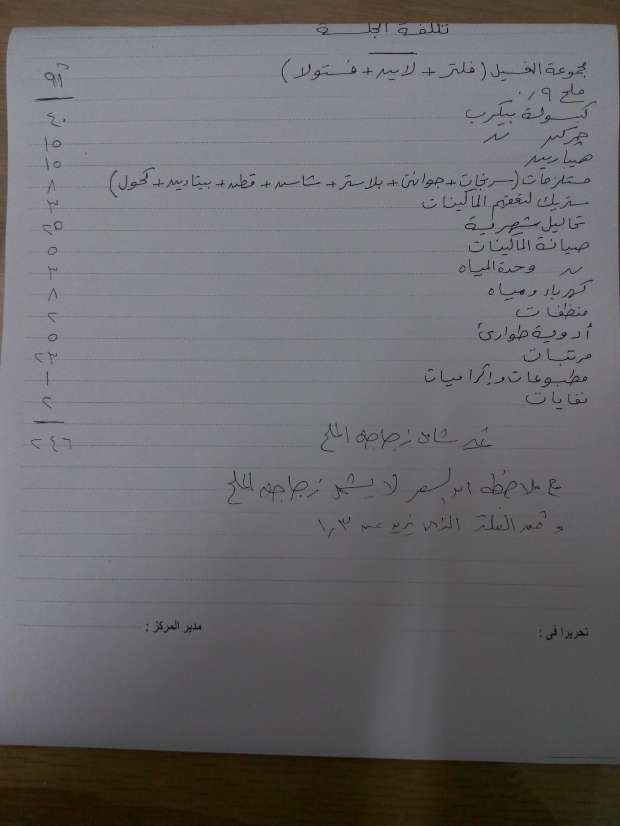 تكلفة الجلسة
مجموعة الغسيل (فلتر + لاين + فستولا) ٩٦
ملح ٩ر.
كبسولة بيكرب ٤٠
چركن ~ ١٥
هيبارين ١٥
مستلزمات (سرنجات + جوانتى + بلاستر + شاش + قطن + بيتادين + كحول) ٨
ستريك لتعقيم الماكينات ٣
تحاليل شهرية ٢٥
صيانة الماكينات ٥
~ وحدة المياه ٣
كهرباء ومياه ٨
منظفات ٢
أدوية طوارئ ٥
مرتبات ٢٣
مطبوعات وإكراميات ١
نفايات ٢
٢٤٦
غير شامل زجاجة الملح
مع ملاحظة أن السعر لا يشمل زجاجة الملح
وثمن الفلتر الذى يزيد عن ١٫٣
تحريرا فى : مدير المركز :